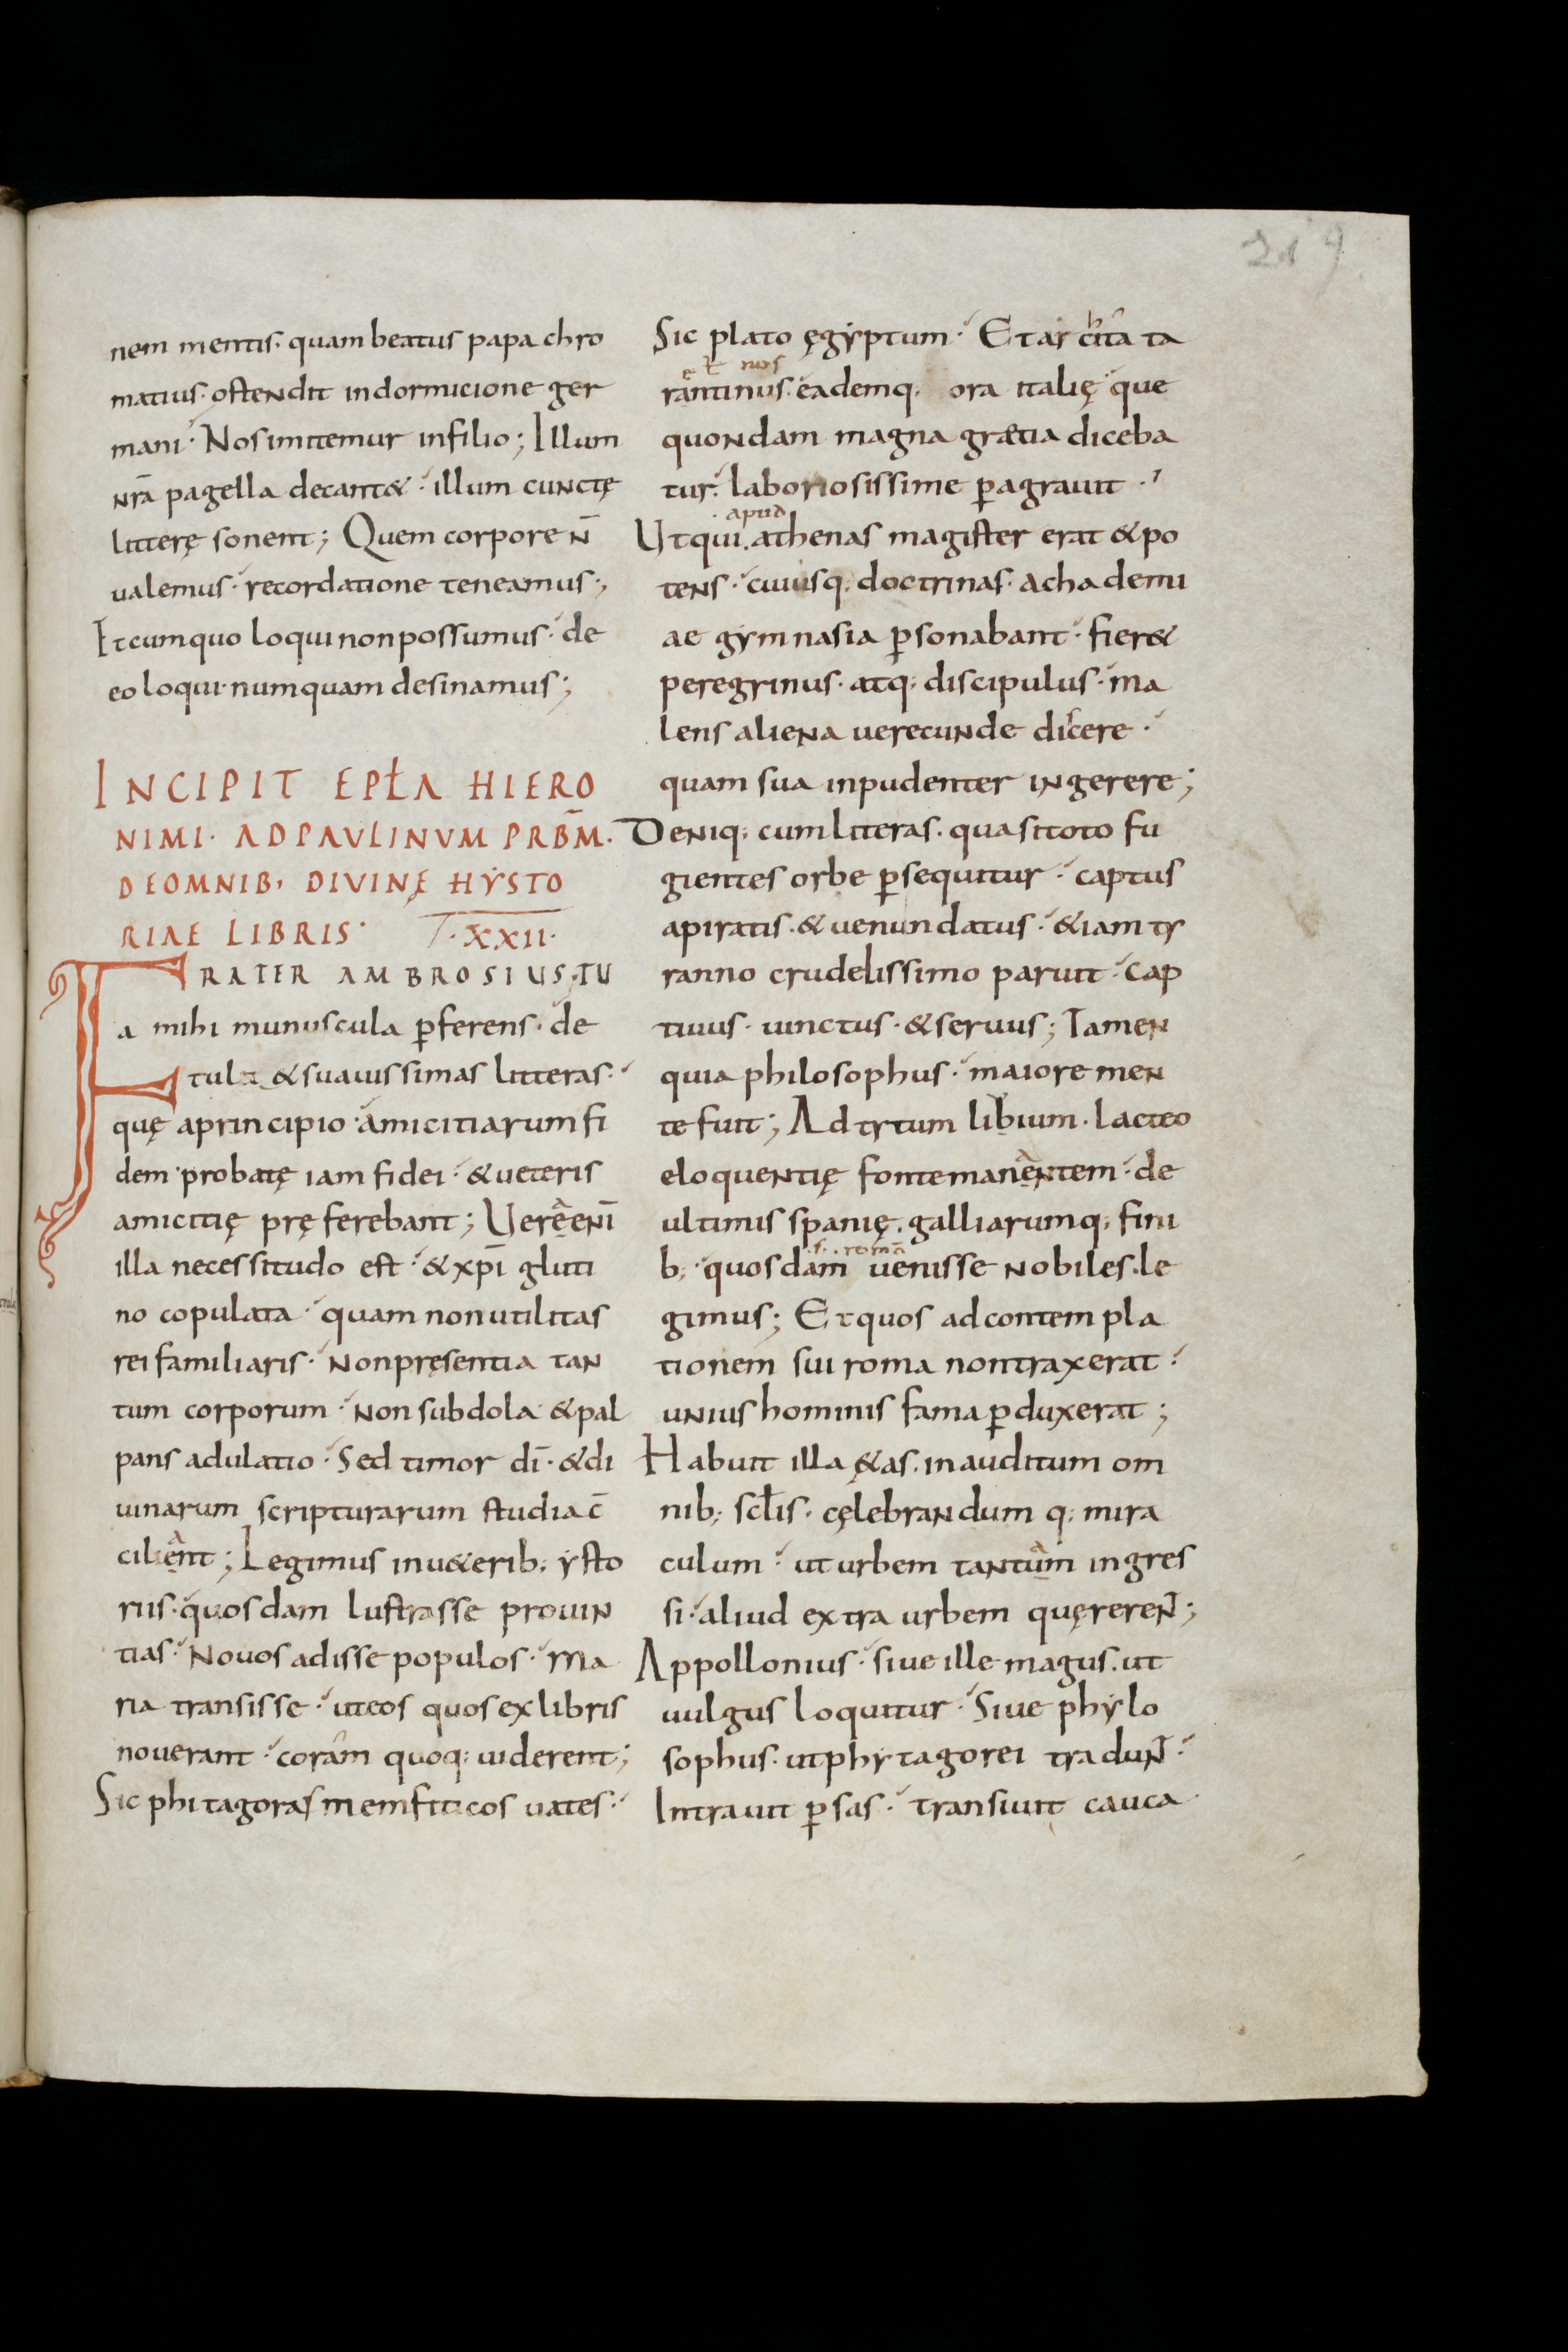 219
nem mentis· quam beatus papa chro
matius· ostendit in dormicione ger
mani· Nos imitemur in filio; Illum
nr̄a pagella decant& · illum cunctę
litterę sonent; Quem corpore n̄
ualemus· recordatione teneamus;
Et cum quo loqui non possumus· de
eo loqui numquam desinamus;
INCIPIT EPŁA HIERO
NIMI· AD PAULINUM PRB̄M·
DE OMNIB; DIVINĘ HẎSTO
RIAE LIBRIS· XXII·
FRATER AMBROSIUS· TU
a mihi munuscula p̲ferens· de
tulit & suauissimas litteras·
quę a principio amicitiarum fi
dem· probatę iam fidei· & ueteris
amicitię pręferebant; Uerẹa enī
illa necessitudo est· & xp̄i gluti
no copulata· quam non utilitas
rei familiaris· Non pręsentia tan
tum corporum· Non subdola & pal
pans adulatio· Sed timor dī· & di
uinarum scripturarum studia c̄
ciliẹant; Legimus in u&erib; ẏsto
riis· quosdam lustrasse prouin
tias· Nouos adisse populos· Ma
ria transisse· ut eos quos ex libris
nouerant· coram quoq; uiderent;
Sic phitagoras memfiticos uates·
Sic plato ęgẏptum· Et archita ta
e ł nos
rantinus· eademq; ora italię que
quondam magna grætia diceba
tur· laboriosissime p̲agrauit·
apud
Ut qui· athenas magister erat & po
tens· cuiusq; doctrinas· achademi
ae gẏmnasia p̲sonabant· fier&
peregrinus· atq; discipulus· ma
lens aliena uerecunde dicere·
quam sua inpudenter ingerere;
Deniq; cum literas· quasi toto fu
gientes orbe p̲sequitur· captus
a piratis· & uenundatus· & iam ty
ranno crudelissimo paruit· cap
tiuus· uinctus· & seruus; Tamen
quia philosophus· maiore men
te fuit; Ad tytum libium· lacteo
eloquentię fonte manẹantem· de
ultimis spanię· galliarumq; fini
·s· romā
b; quosdam uenisse nobiles· le
gimus; Et quos ad contempla
tionem sui roma non traxerat·
unius hominis fama p̲duxerat;
Habuit illa ę&as· inauditum om
nib; scłis· cęlebrandum q; mira
culum· ut urbem tantụam ingres
si· aliud extra urbem quęrereñ;
Appollonius· siue ille magus· ut
uulgus loquitur· Siue phẏlo
sophus· ut phẏtagorei traduñ·
Intrauit p̲sas· transiuit cauca